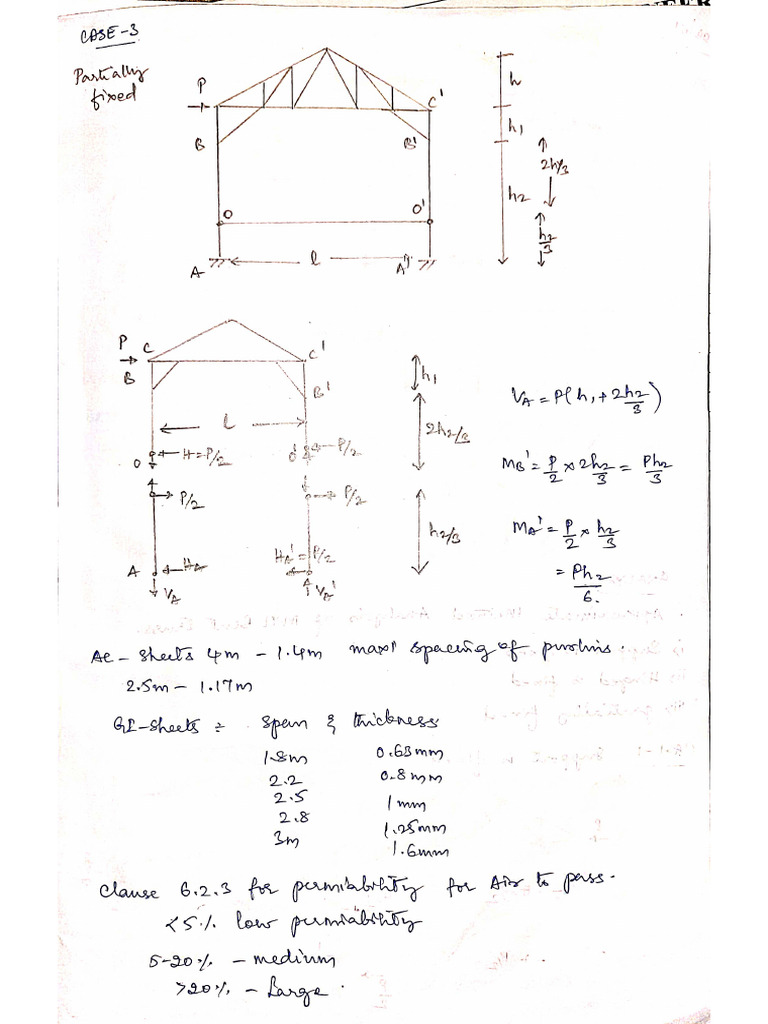 CASE-3
Partially
fixed
P
C'
B
B'
O
O'
A
l
A'
h
h1
h2
2h2/3
h2/3
P
C
C'
B
B'
l
h1
2h2/3
VA = P(h1 + 2h2/3)
O
H=P/2
O'
P/2
P/2
P/2
MB' = P/2 x 2h2/3 = Ph2/3
h2/3
MA' = P/2 x h2/3
= Ph2/6.
A
HA
HA' = P/2
VA
A'
VA'
Ac - Sheets 4m - 1.4m maxm spacing of purlins.
2.5m - 1.17m
GI-Sheets ÷ Span & thickness
1.8m 0.63mm
2.2 0.8mm
2.5 1mm
2.8 1.25mm
3m 1.6mm
Clause 6.2.3 for permiability for Air to pass.
<5% low permiability
5-20% - medium
>20% - Large.